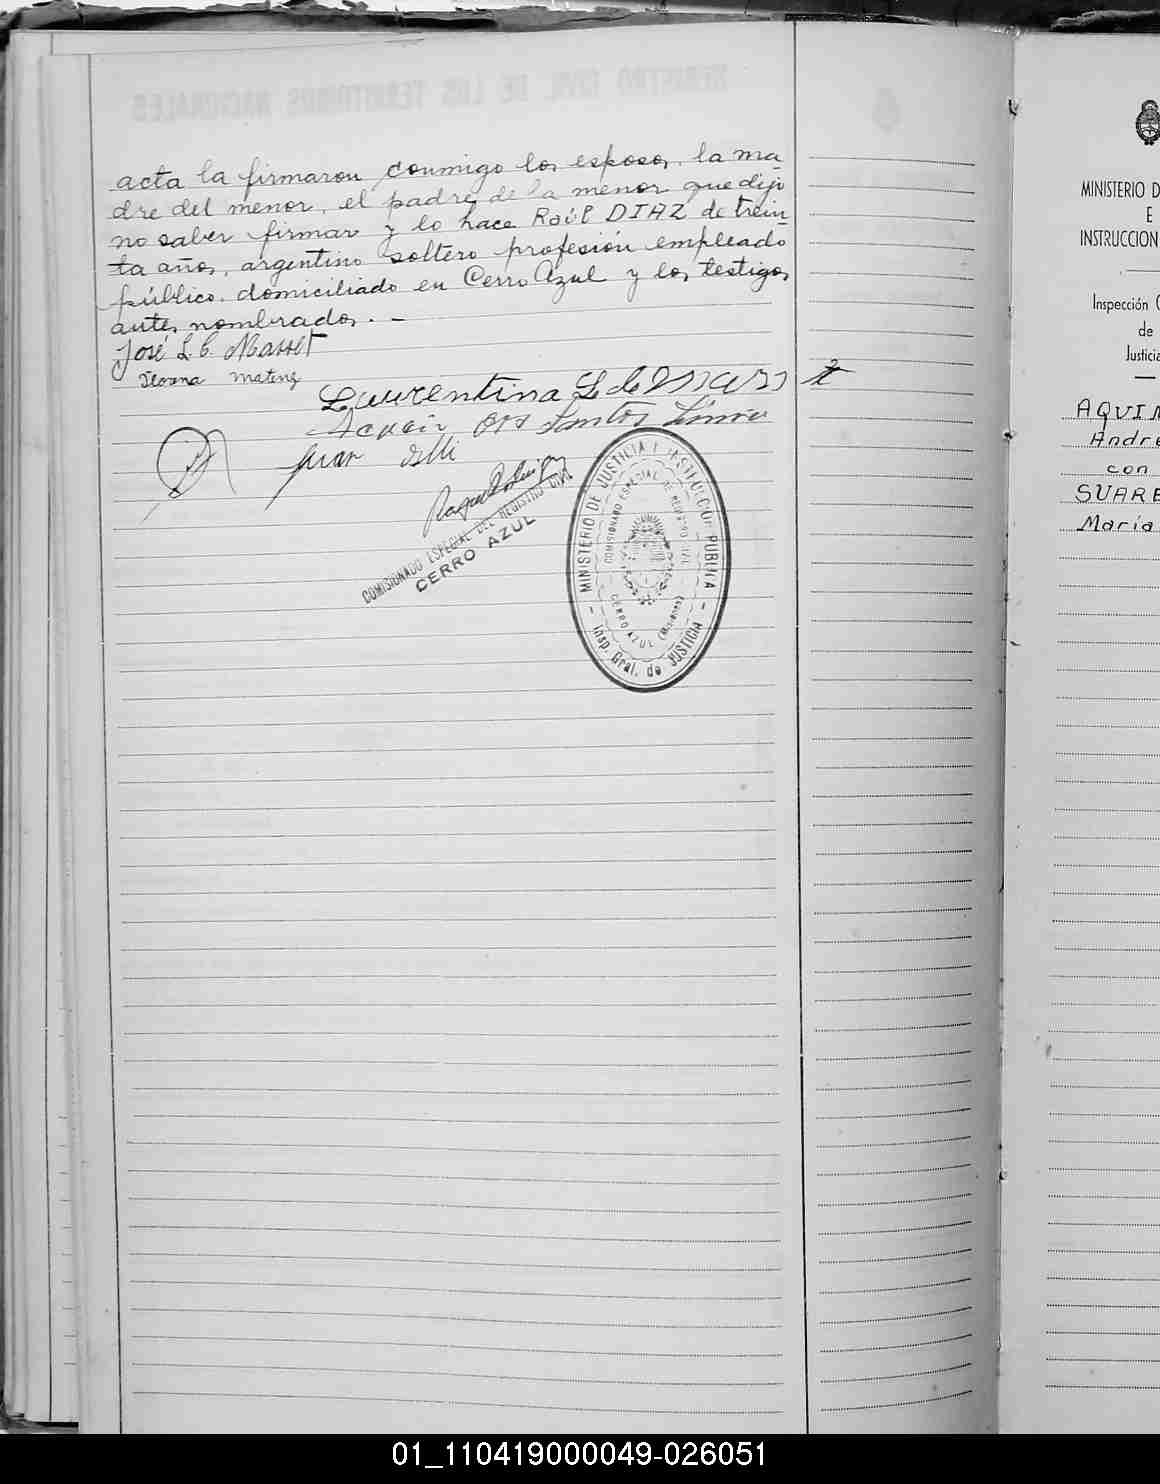 acta la firmaron conmigo los esposos, la ma-
dre del menor, el padre de la menor que dijo
no saber firmar y lo hace Raúl DIAZ de trein-
ta años, argentino soltero profesión empleado
público domiciliado en Cerro Azul y los testigos
antes nombrados. -
José L. C. Masset
Laurentina L de Masset
dos Santos
Juan
COMISIONADO ESPECIAL DEL REGISTRO CIVIL
CERRO AZUL
MINISTERIO DE JUSTICIA E INSTRUCCION PUBLICA
COMISIONADO ESPECIAL DE REGISTRO CIVIL
CERRO AZUL (Misiones)
Insp. Gral. de JUSTICIA
MINISTERIO D
E
INSTRUCCION
Inspección
de
Justicia
AQUIN
André
con
SUARE
María
01_110419000049-026051